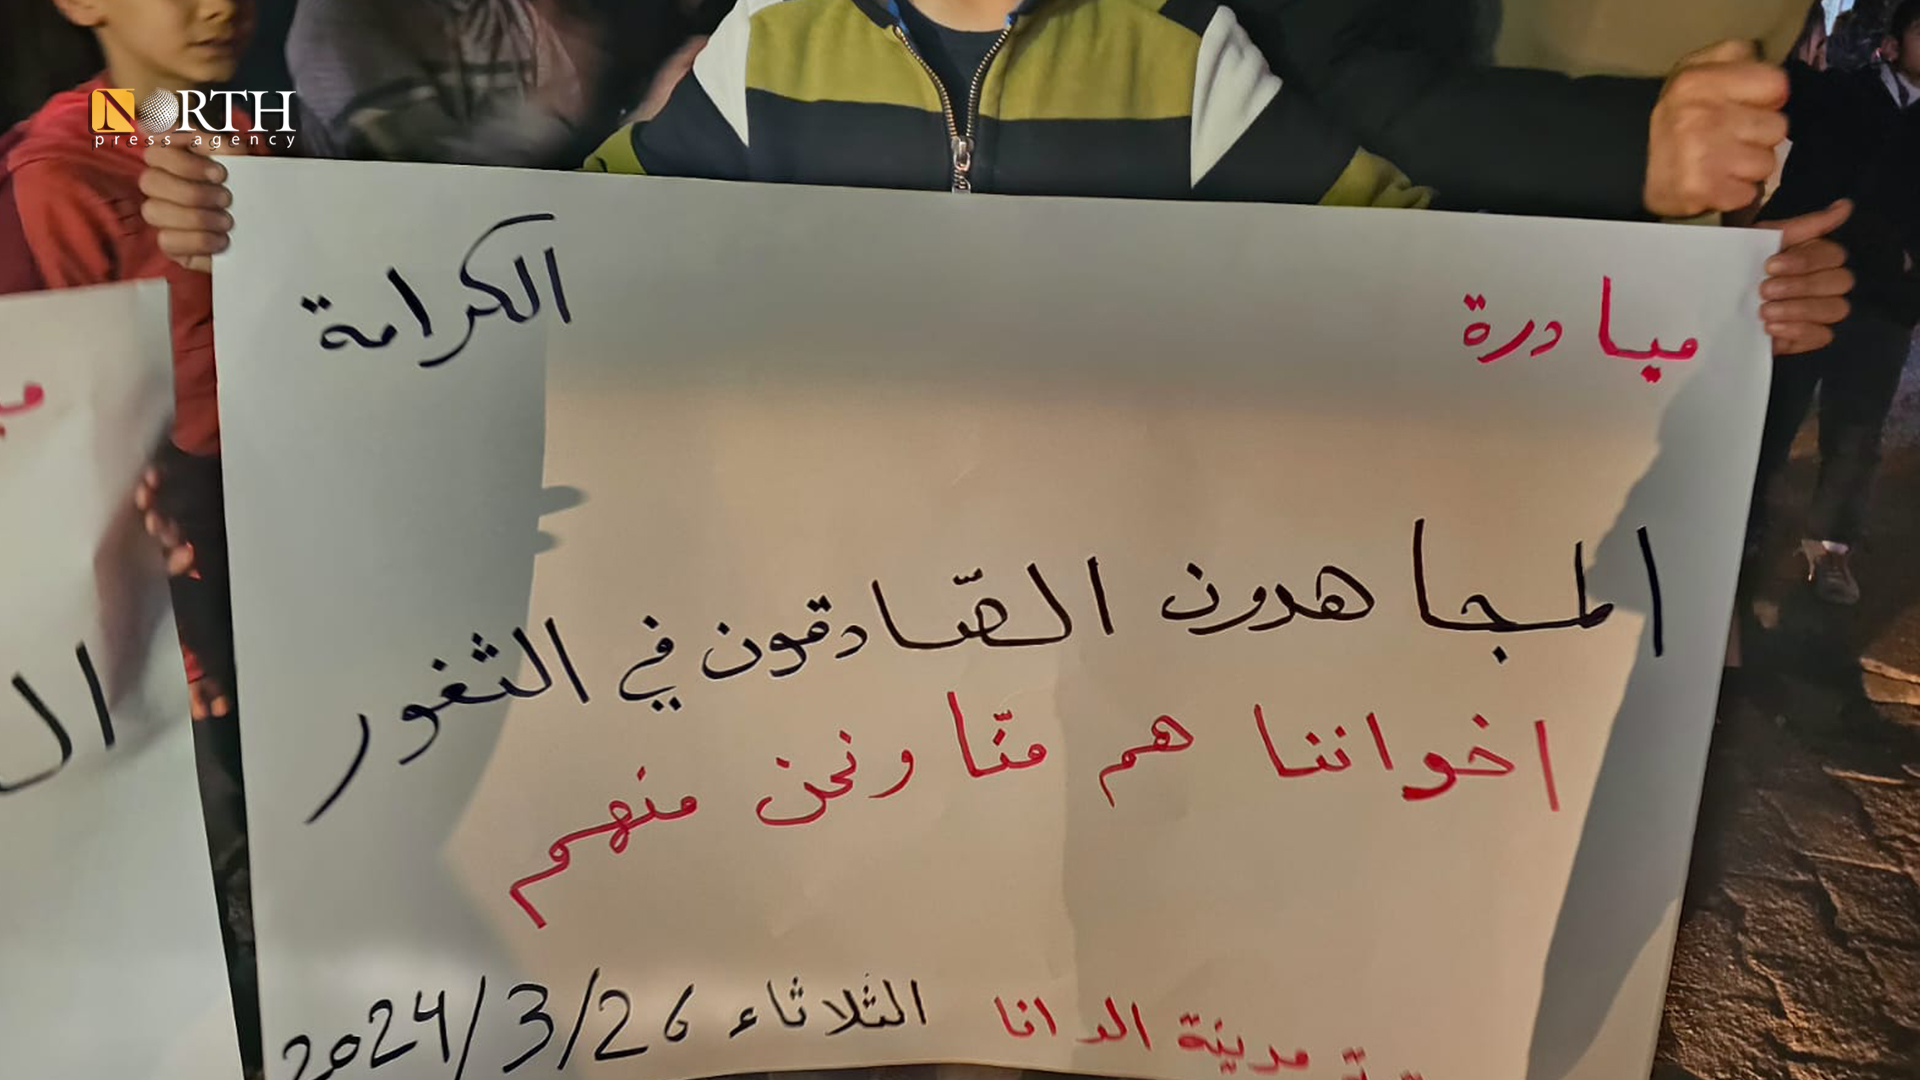 NORTH
press agency
مبادرة الكرامة
المجاهدون الصّادقون في الثغور
اخواننا هم منّا ونحن منهم
مدينة الدانا الثلاثاء 2024/3/26
ال